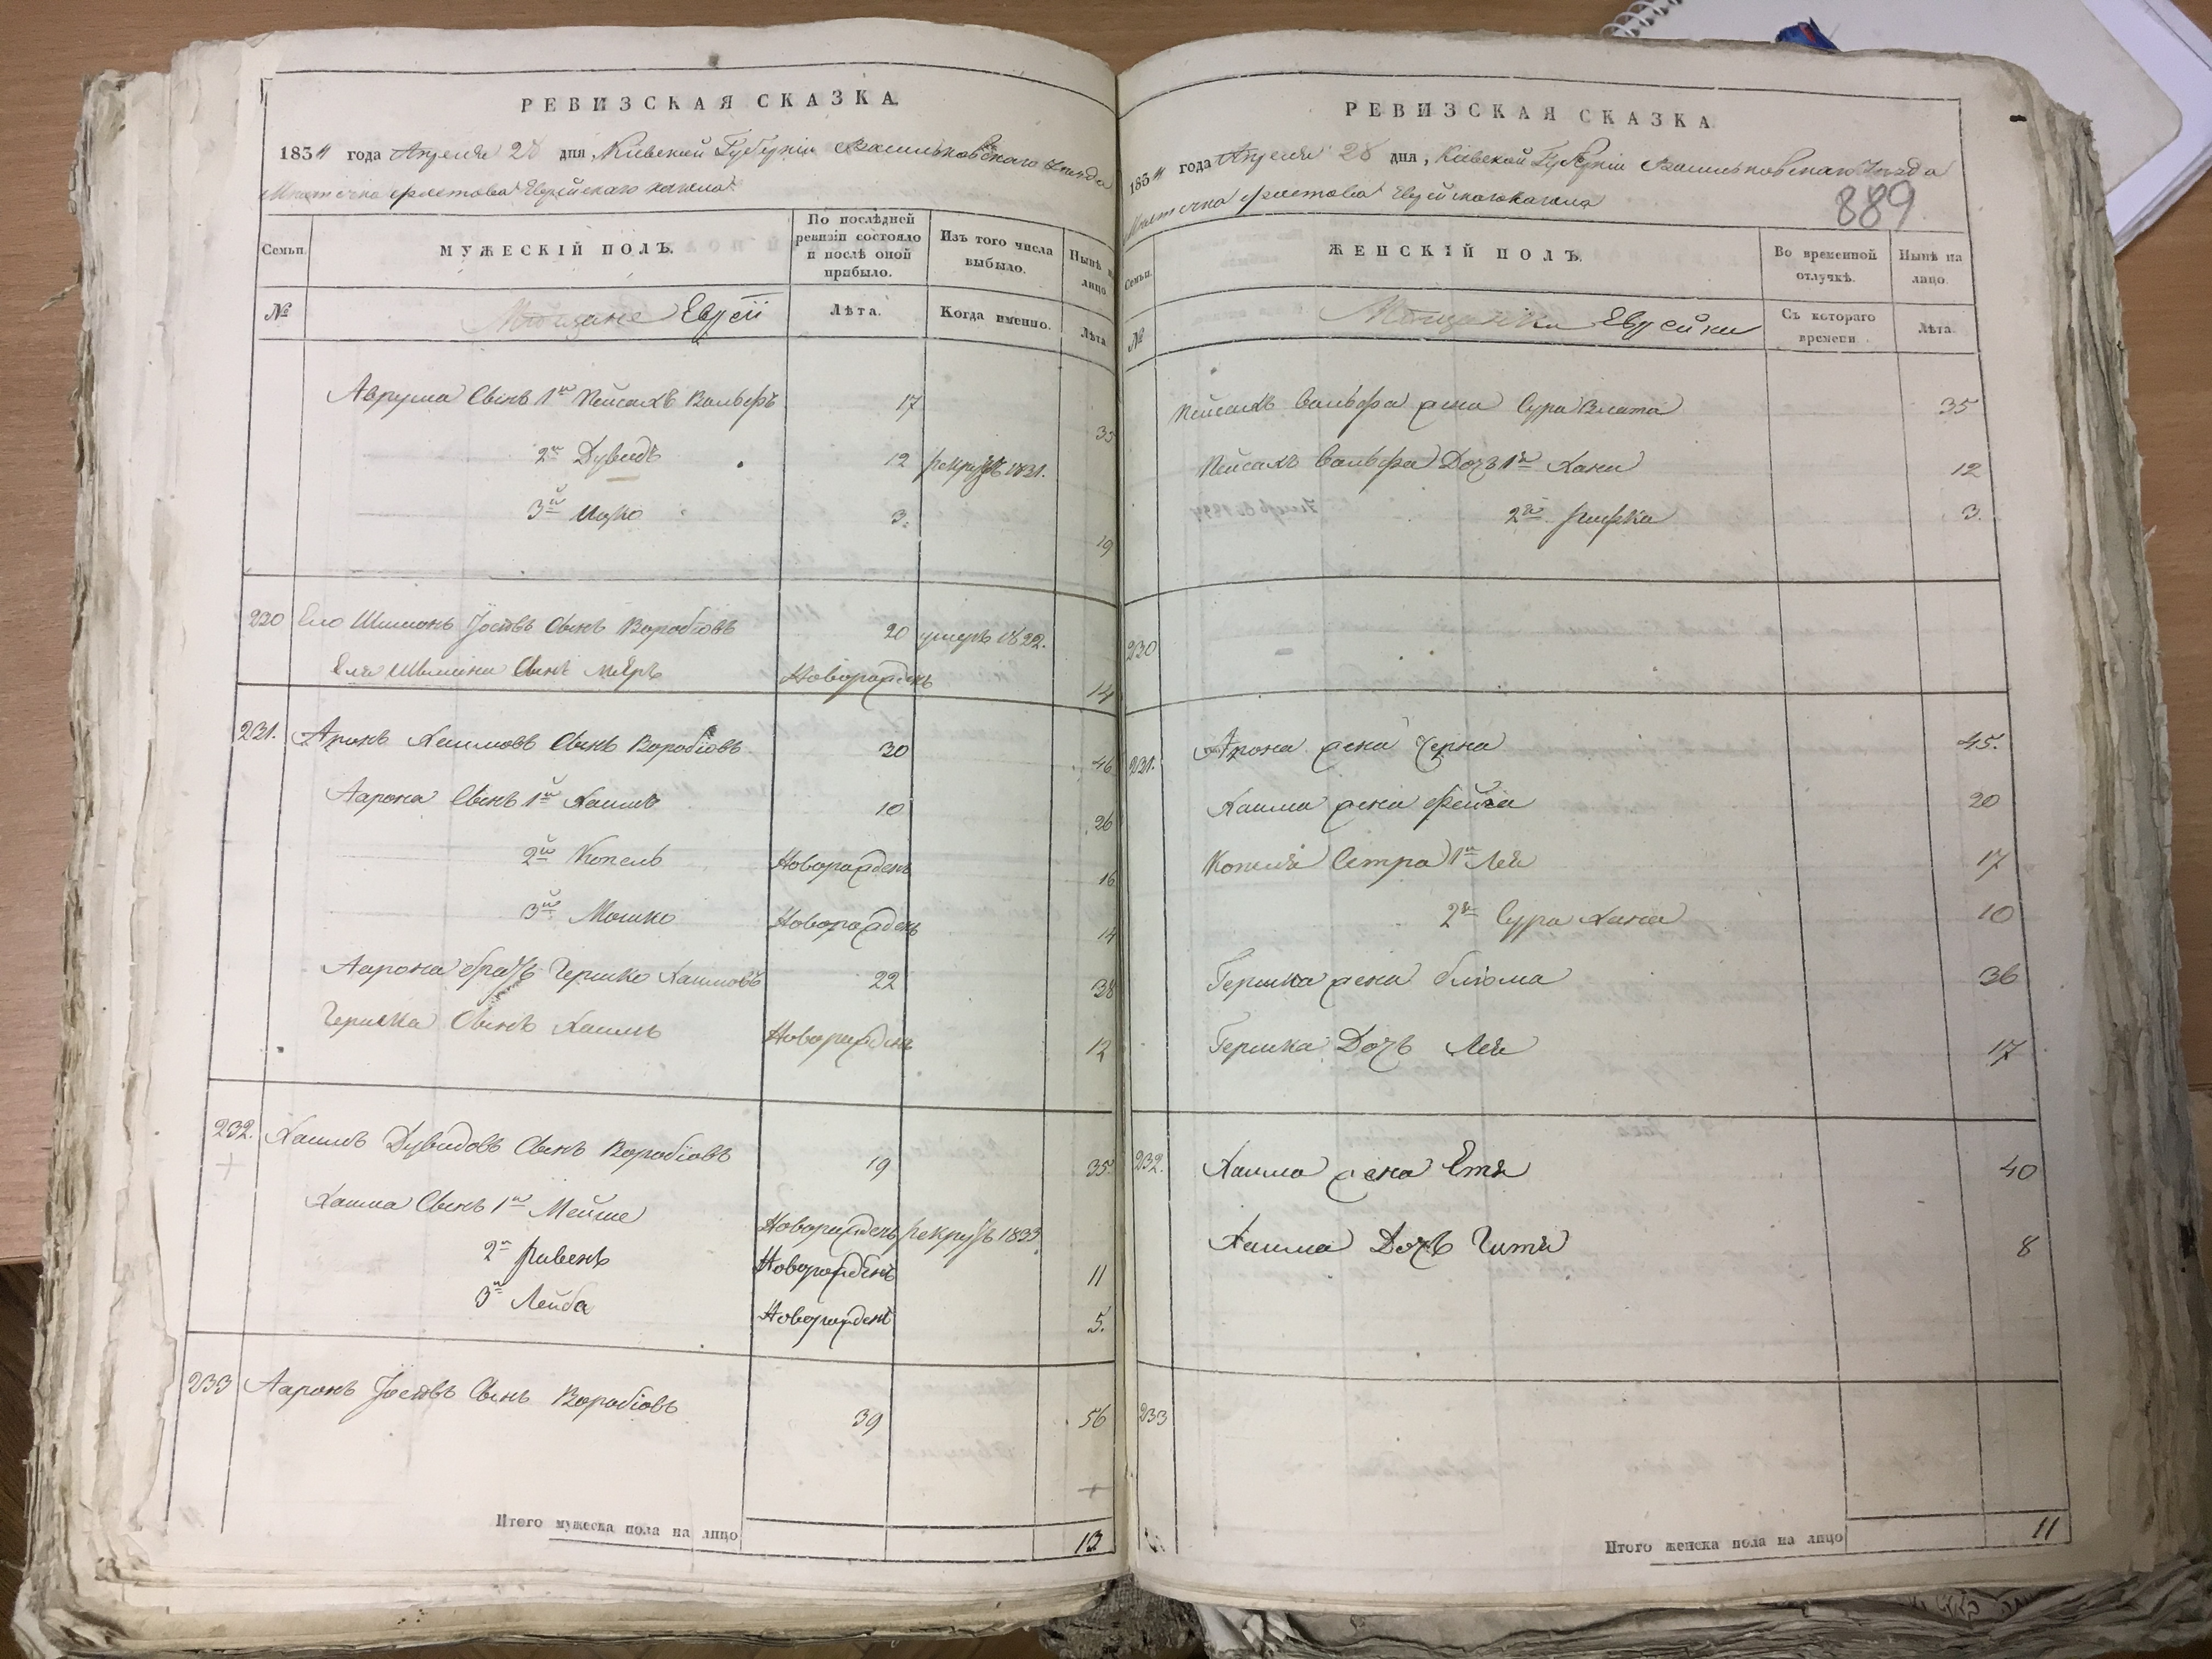 РЕВИЗСКАЯ СКАЗКА.
1834 года Апреля 28 дня, Кіевской Губерніи Васильковскаго Уезда
Местечка Фастова Еврейскаго кагала
Семьи.
МУЖЕСКІЙ ПОЛЪ.
По послѣдней ревизіи состояло и послѣ оной прибыло.
Изъ того числа выбыло.
Нынѣ на лицо
№
Мѣщане Евреи
Лѣта.
Когда именно.
Лѣта
Аврума Сынъ 1й Пейсахъ Вольфъ 17 35
2й Дувидъ 12 рекрутъ 1831.
3й Ицко 3. 19
230 Ело Шимонъ Іосіовъ Сынъ Воробіовъ 20 умеръ 1822.
Еля Шимона Сынъ Мееръ Новорожденъ 14
231. Аронъ Хаимовъ Сынъ Воробіовъ 30 46
Аарона Сынъ 1й Хаимъ 10 26
2й Копель Новорожденъ 16
3й Мошко Новорожденъ 14
Аарона братъ Гершко Хаимовъ 22 38
Гершка Сынъ Хаимъ Новорожденъ 12
232. Хаимъ Дувидовъ Сынъ Воробіовъ 19 35
Хаима Сынъ 1й Мейше Новорожденъ рекрутъ 1833.
2й Рувенъ Новорожденъ 11
3й Лейба Новорожденъ 5.
233 Ааронъ Іосіовъ Сынъ Воробіовъ 39 56
Итого мужеска пола на лицо 12
РЕВИЗСКАЯ СКАЗКА
1834 года Апреля 28 дня, Кіевской Губерніи Васильковскаго Уезда
Местечка Фастова Еврейскаго кагала
889
Семьи.
ЖЕНСКІЙ ПОЛЪ.
Во временной отлучкѣ.
Нынѣ на лицо.
№
Мѣщанки Еврейки
Съ котораго времени
Лѣта.
Пейсахъ Вольфа жена Сура Злата 35
Пейсахъ Вольфа Дочь 1я Хана 12
2я Рифка 3.
230
231. Арона жена Черна 45.
Хаима жена Фейга 20
Копеля Сестра 1я Лея 17
2я Сура Хана 10
Гершка жена Блюма 36
Гершка Дочь Лея 17
232. Хаима жена Етя 40
Хаима Дочь Гитя 8
233
Итого женска пола на лицо 11